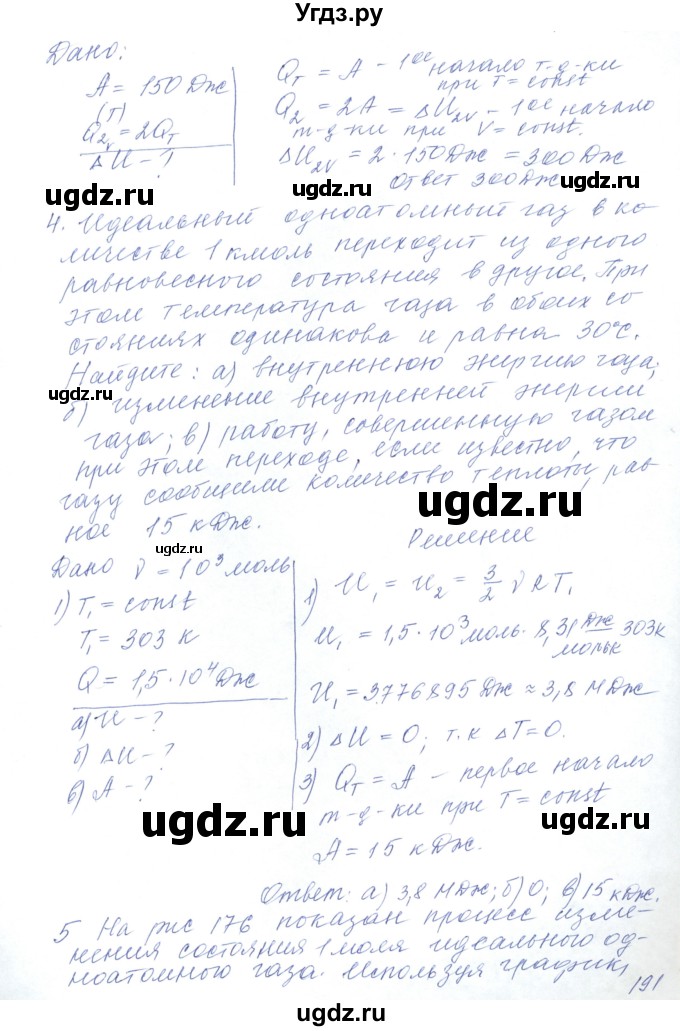 Угдз.ру
Дано:
A = 150 Дж
(T)
Q₂ᵥ = 2Qт
ΔU - ?
Qт = A - 1ое начало т-д-ки
при T = const
Q₂ = 2A = ΔU₂ᵥ - 1ое начало
т-д-ки при V = const.
ΔU₂ᵥ = 2 · 150 Дж = 300 Дж
Ответ 300 Дж
ugdz.ru ugdz.ru
4. Идеальный одноатомный газ в ко-
личестве 1 кмоль переходит из одного
равновесного состояния в другое. При
этом температура газа в обоих со-
стояниях одинакова и равна 30°С.
Найдите: а) внутреннюю энергию газа;
ugdz.ru
б) изменение внутренней энергии
газа; в) работу, совершенную газом
при этом переходе, если известно, что
газу сообщили количество теплоты, рав-
ugdz.ru
ное 15 кДж.
Решение
ugdz.ru
Дано ν = 10³ моль
1) T₁ = const
T₁ = 303 К
Q = 1,5 · 10⁴ Дж
а) U - ?
б) ΔU - ?
в) A - ?
1) U₁ = U₂ = 3/2 νRT₁
U₁ = 1,5 · 10³ моль · 8,31 Дж/моль К 303 К
U₁ = 3776895 Дж ≈ 3,8 МДж
2) ΔU = 0; т.к ΔT = 0.
3) Qт = A - первое начало
т-д-ки при T = const
A = 15 кДж.
ugdz.ru ugdz.ru
Ответ: а) 3,8 МДж; б) 0; в) 15 кДж.
5 На рис 176 показан процесс изме-
нения состояния 1 моля идеального од-
ноатомного газа. Используя график,
191
ugdz.ru ugdz.ru